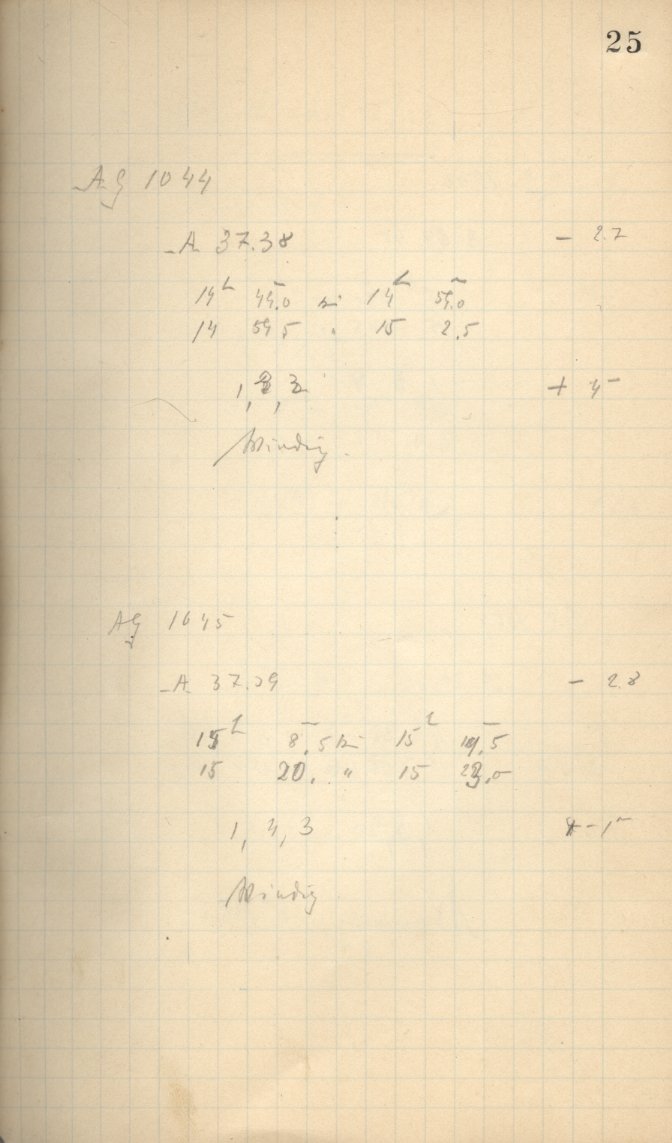 25
AG 1044
A 37.38 - 2.7
14h 44m.0 bis 14h 54m.0
14 54.5 " 15 2.5
1, 2, 3 +
Windig.
AG 1045
A 37.39 - 2.8
15h 8m.5 bis 15h 19m.5
15 20. " 15 23.0
1, 4, 3
Windig